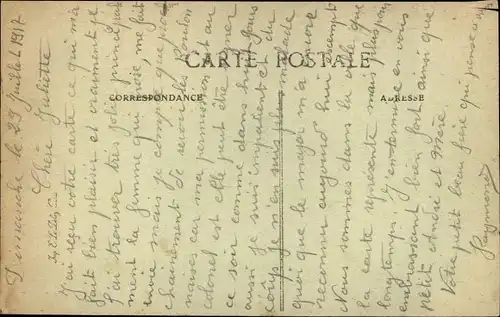 CARTE POSTALE
CORRESPONDANCE
ADRESSE
le 29 Juillet 1917
Chère Juliette
J'ai reçu votre carte ce qui m'a
fait bien plaisir et vraiment je
l'ai trouver très jolie principale
ment la femme qui me fait
envie mais je compte que
de revoir les
car ma permission est au
colonel est elle peut être signer
ce soir comme dans huit jours
aussi je suis impatient du
coup je n'en suis plus malade
quoi que le major m'a encore
reconnu aujourd'hui exempt
Nous sommes dans la ville que
la carte représente mais plus pour
longtemps. J'en termine en vous
embrassant bien fort ainsi que
Petit André et Mère
Votre petit beau frère qui pense a
Raymond